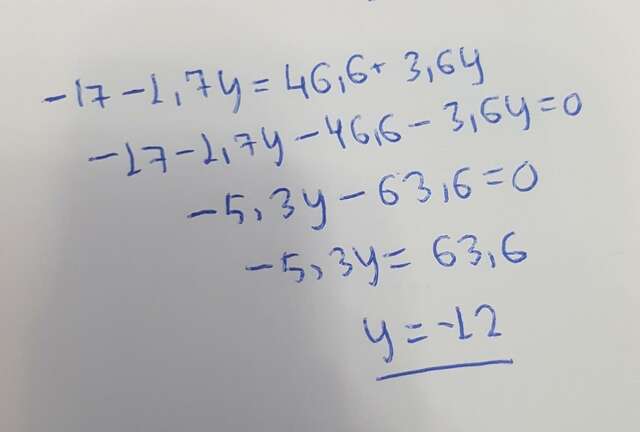 -17-1,7y=46,6+3,6y
-17-1,7y-46,6-3,6y=0
-5,3y-63,6=0
-5,3y=63,6
y=-12